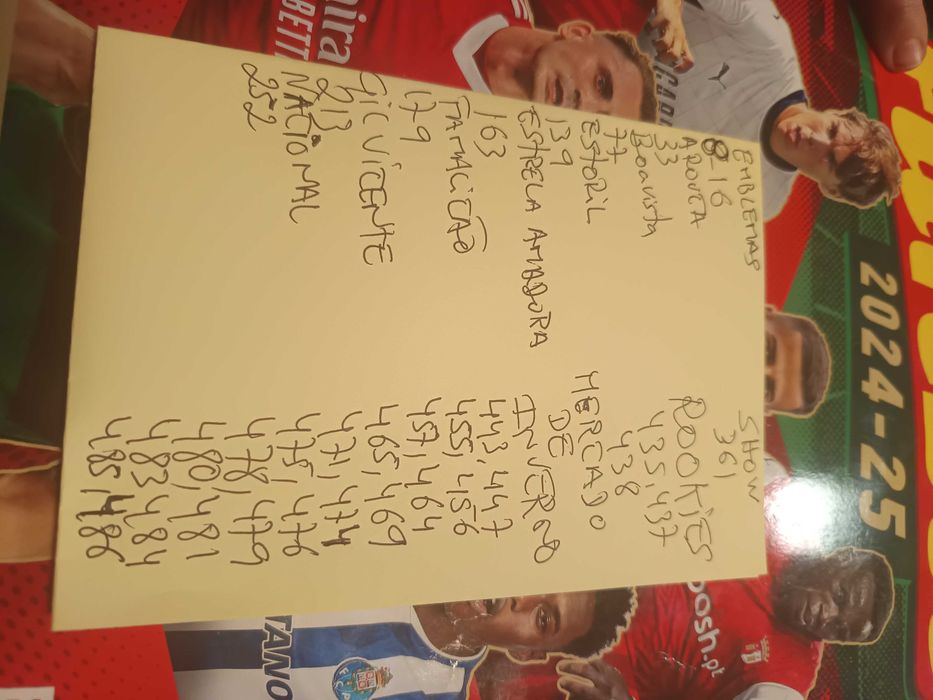 EMBLEMAS
8-16
AROUCA
33
Boavista
77
ESTORIL
139
ESTRELA AMADORA
163
FAMALICÃO
179
GIL VICENTE
213
NACIONAL
252
SHOW
361
ROOKIES
435, 437
438
MERCADO
DE
INVERNO
443, 447
455, 456
457, 464
465, 469
471, 474
475, 476
478, 479
480, 481
483, 484
485, 486
2024-25
BETT
posh.pt
TANO